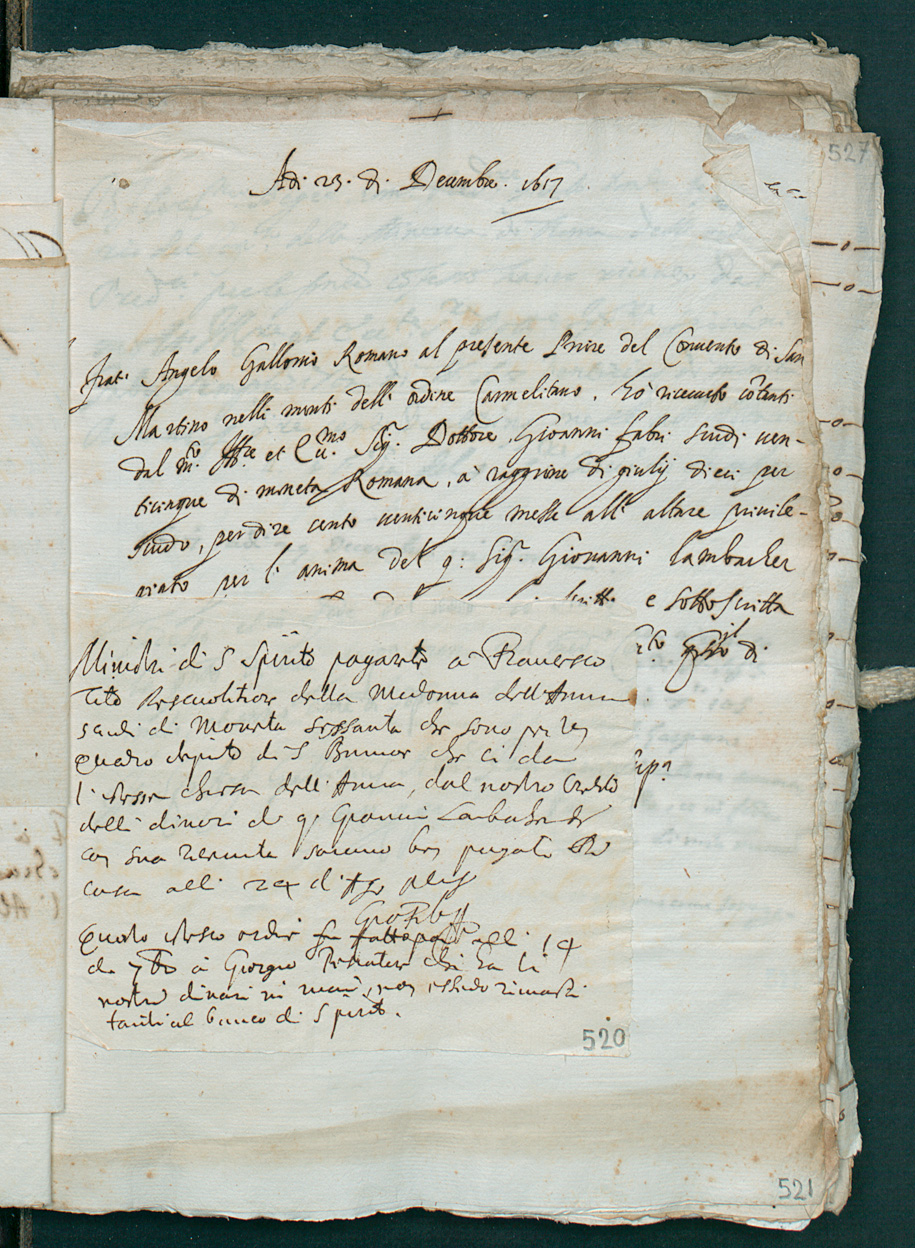 527
Adi 23. di Decembre. 1617
frat. Angelo Gallonio Romano al presente Priore del Convento di San
Martino nelli monti dell' ordine Carmelitano. hò riceuuto cõtanti
dal m.to Ill.re et Ecc.mo Sig.r Dottore Giouanni fabri scudi uen-
ticinque di moneta Romana, à raggione di giulij dieci per
scudo, per dire cento uenticinque messe all' altare priuile-
giato per l' anima del q: Sig.r Giouanni lambacher
scritta e sottoscritta
di
Ministri di S Spirito pagarete à Francesco
Tito della Madonna dell'Anima
scudi di Moneta sessanta che sono per un
Quadro di S che ci da
l'istessa chiesa dell'Anima, dal nostro credito
delli dinari del q. Giouanni
con sua riceuuta saranno ben pagati Di
casa alli 24 d'
Questo istesso ordine fu alli 14
de 7bre à Giorgio che ha li
nostri dinari in mani, non essendo rimasti
tanti al banco di S spirito.
520
521